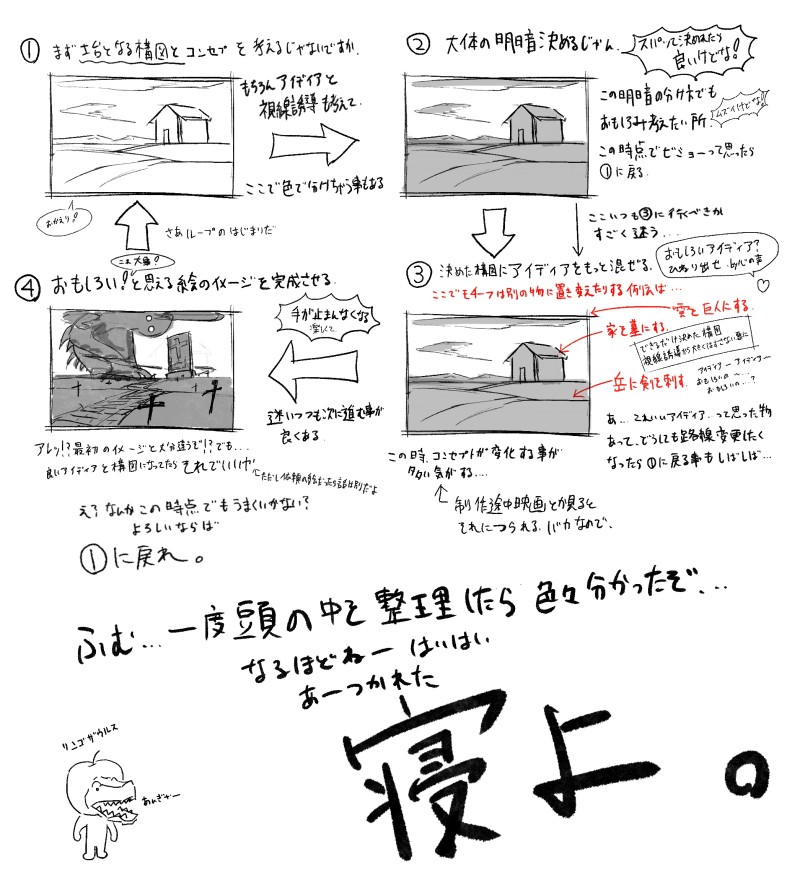 ① まず土台となる構図とコンセプトを考えるじゃないですか
もちろんアイディアと
視線誘導も考えて
ここで色で分けちゃう事もある
おかえり!
さあループのはじまりだ
② 大体の明暗決めるじゃん。
スパッって決めれたら
良いけどな!
この明暗の分け方でも
おもしろみ考えたい所。
ムズイけどな!
この時点でビミョーって思ったら
①に戻る
ここいつも③に行くべきか
すごく迷う...
③ 決めた構図にアイディアをもっと混ぜる。
おもしろいアイディア?
ひねり出せ by心の声
ここでモチーフは別の物に置き変えたりする 例えば...
雲を巨人にする。
家を墓にする。
できるだけ決めた構図
視線誘導から大きくはずさない様に
丘に剣を刺す。
アイディアー アイディアー
おもしろいの〜...
おもしろいの...?
あ...これいいアイディア...って思った物
あって、どうしても路線変更したく
なったら①に戻る事もしばしば...
この時、コンセプトが変化する事が
多い気がする...
制作途中映画とか見ると
それにつられる。バカなので、
これ大事!
④ おもしろい!と思える絵のイメージを完成させる。
手が止まんなくなる
楽しくて
迷いつつも次に進む事が
良くある。
アレッ!?最初のイメージと大分違うぞ!?でも...
良いアイディアと構図になってたらそれでいいや
(ただし依頼の絵だったら話は別だよ
え?なんかこの時点でもうまくいかない?
よろしいならば
①に戻れ。
ふむ...一度頭の中を整理したら色々分かったぞ...
なるほどねー はいはい
あーつかれた
寝よ。
リンゴザウルス
あんぎゃー